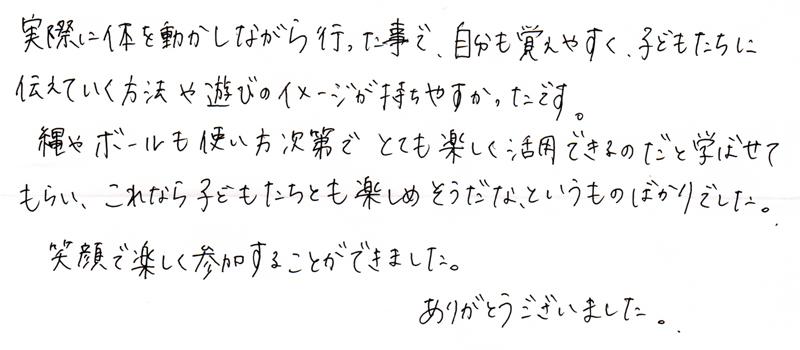 実際に体を動かしながら行った事で、自分も覚えやすく、子どもたちに
伝えていく方法や遊びのイメージが持ちやすかったです。
縄やボールも使い方次第でとても楽しく活用できるのだと学ばせて
もらい、これなら子どもたちとも楽しめそうだな、というものばかりでした。
笑顔で楽しく参加することができました。
ありがとうございました。